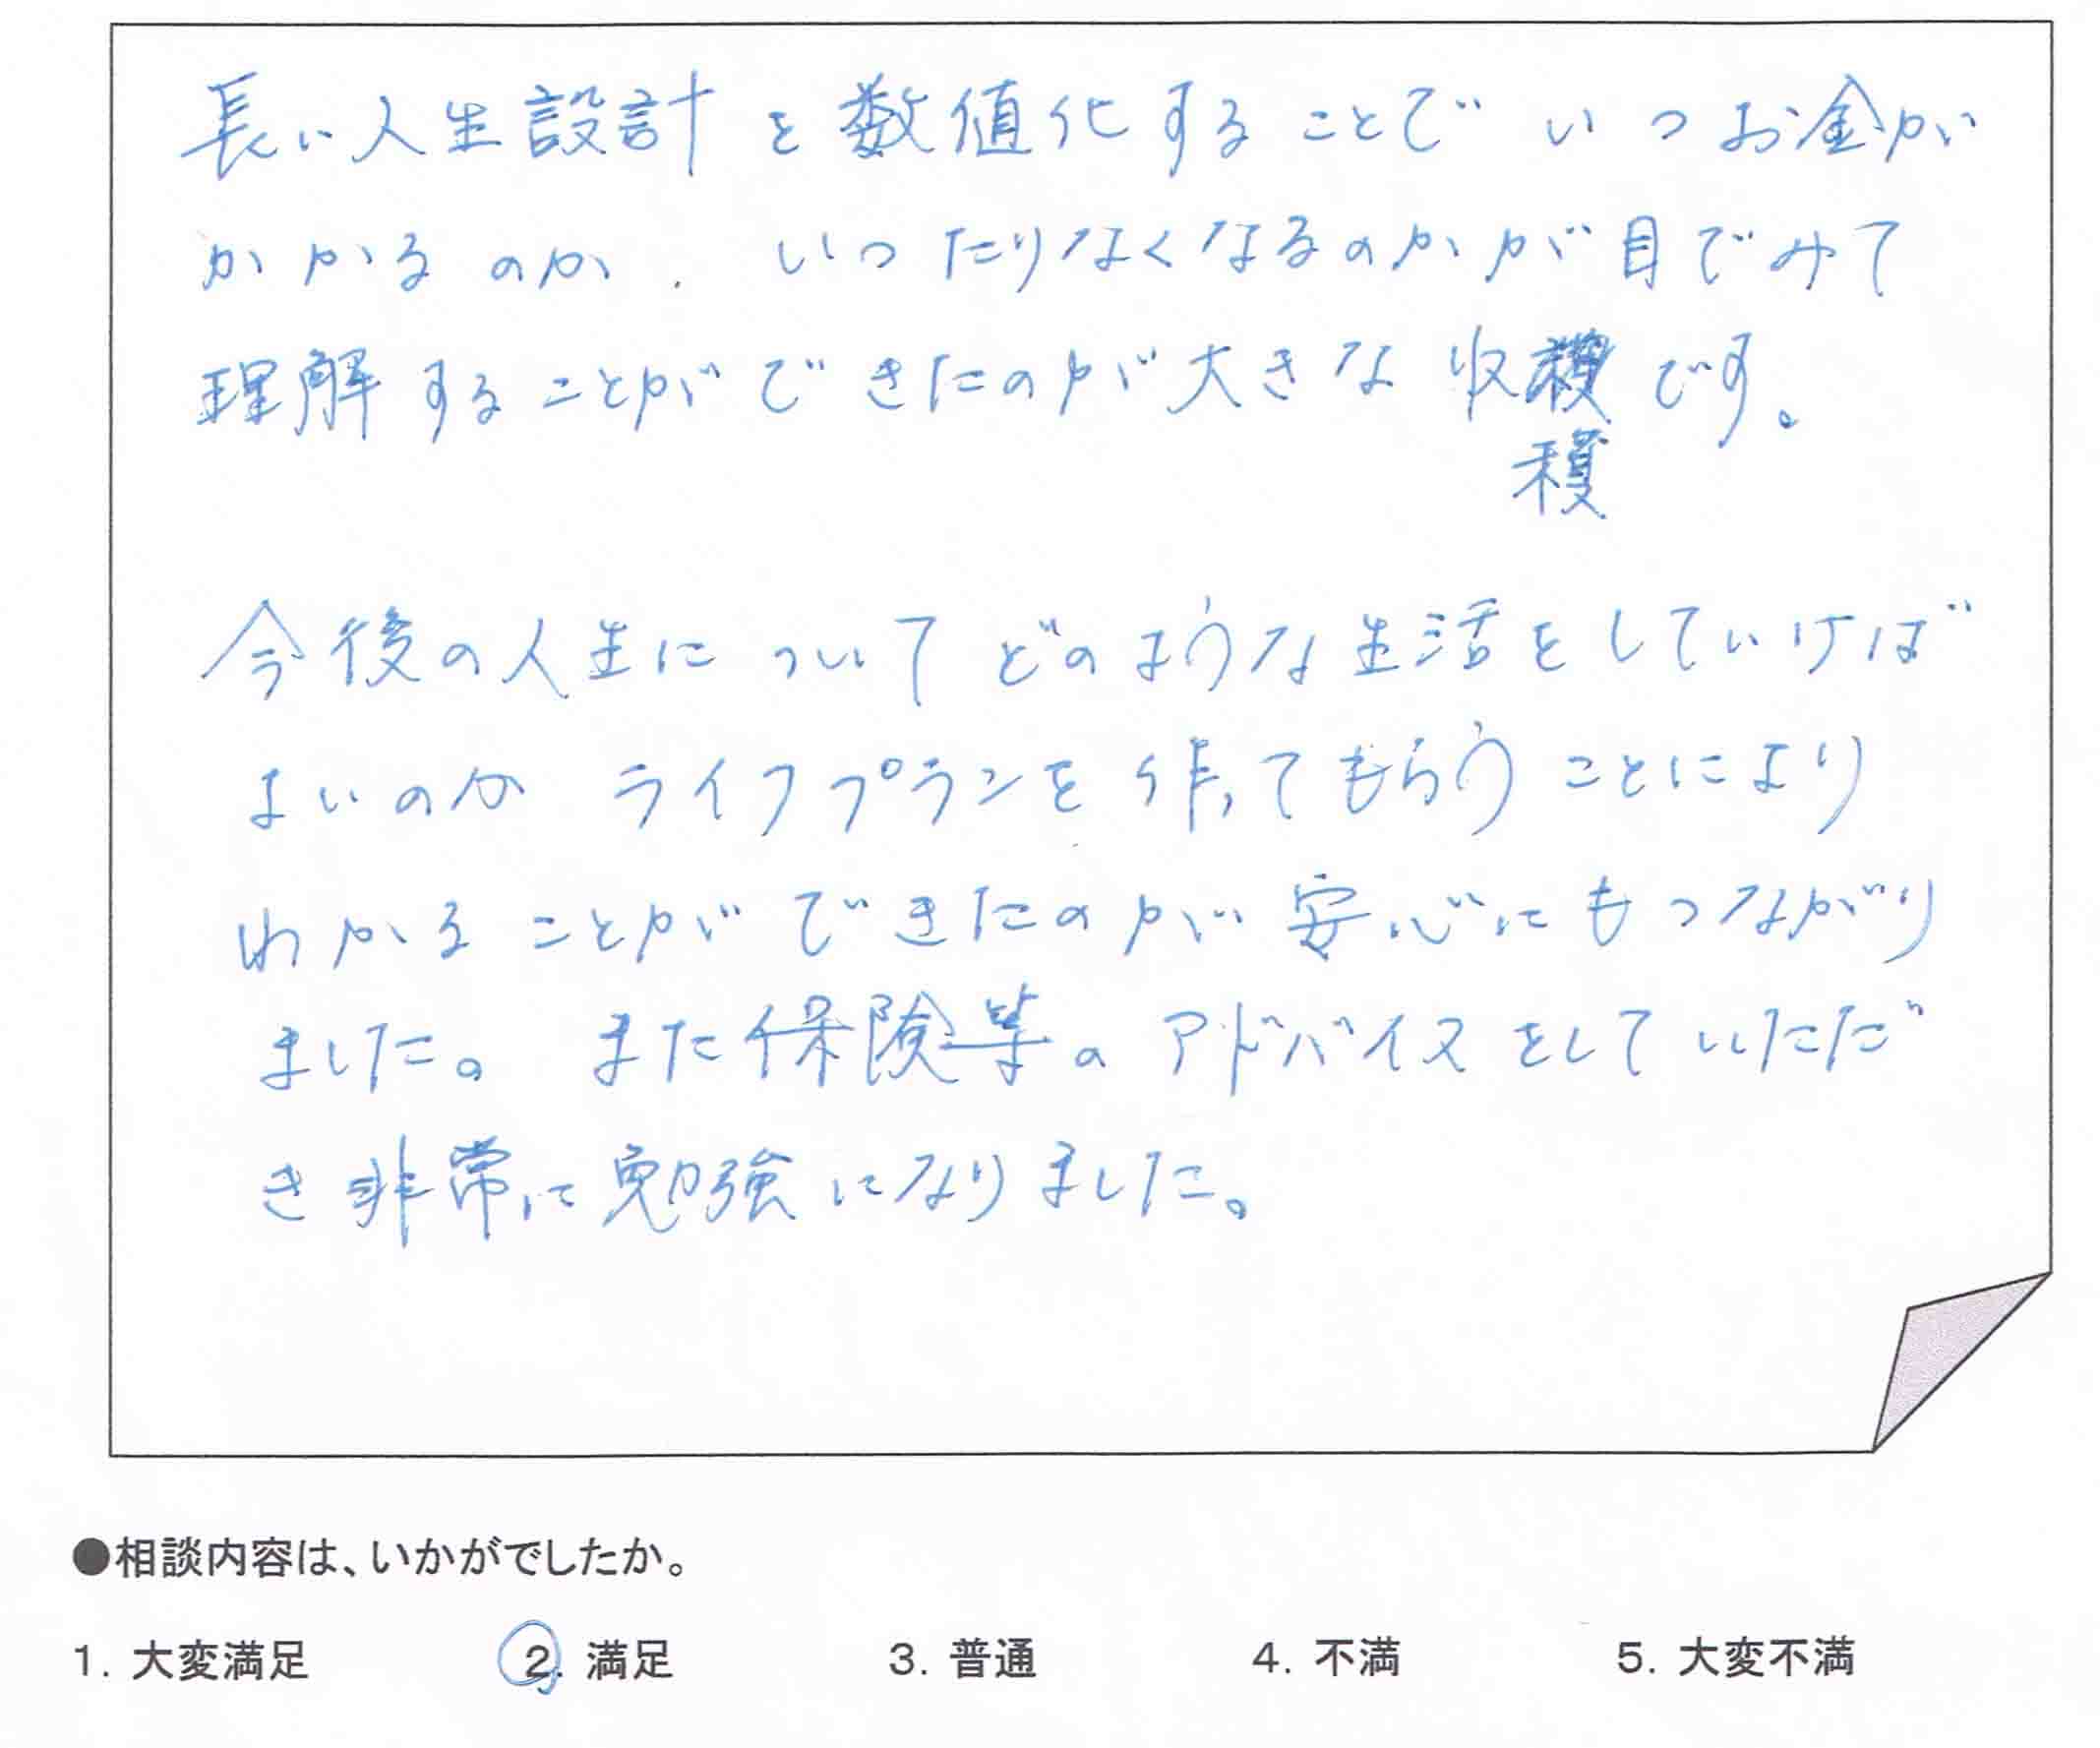 長い人生設計を数値化することで いつお金が
かかるのか、いつたりなくなるのかが目でみて
理解することができたのが大きな収穫です。
穫
今後の人生についてどのような生活をしていけば
よいのか ライフプランを作ってもらうことにより
わかることができたのが安心にもつながり
ました。また保険等のアドバイスをしていただ
き非常に勉強になりました。
●相談内容は、いかがでしたか。
1. 大変満足 2. 満足 3. 普通 4. 不満 5. 大変不満